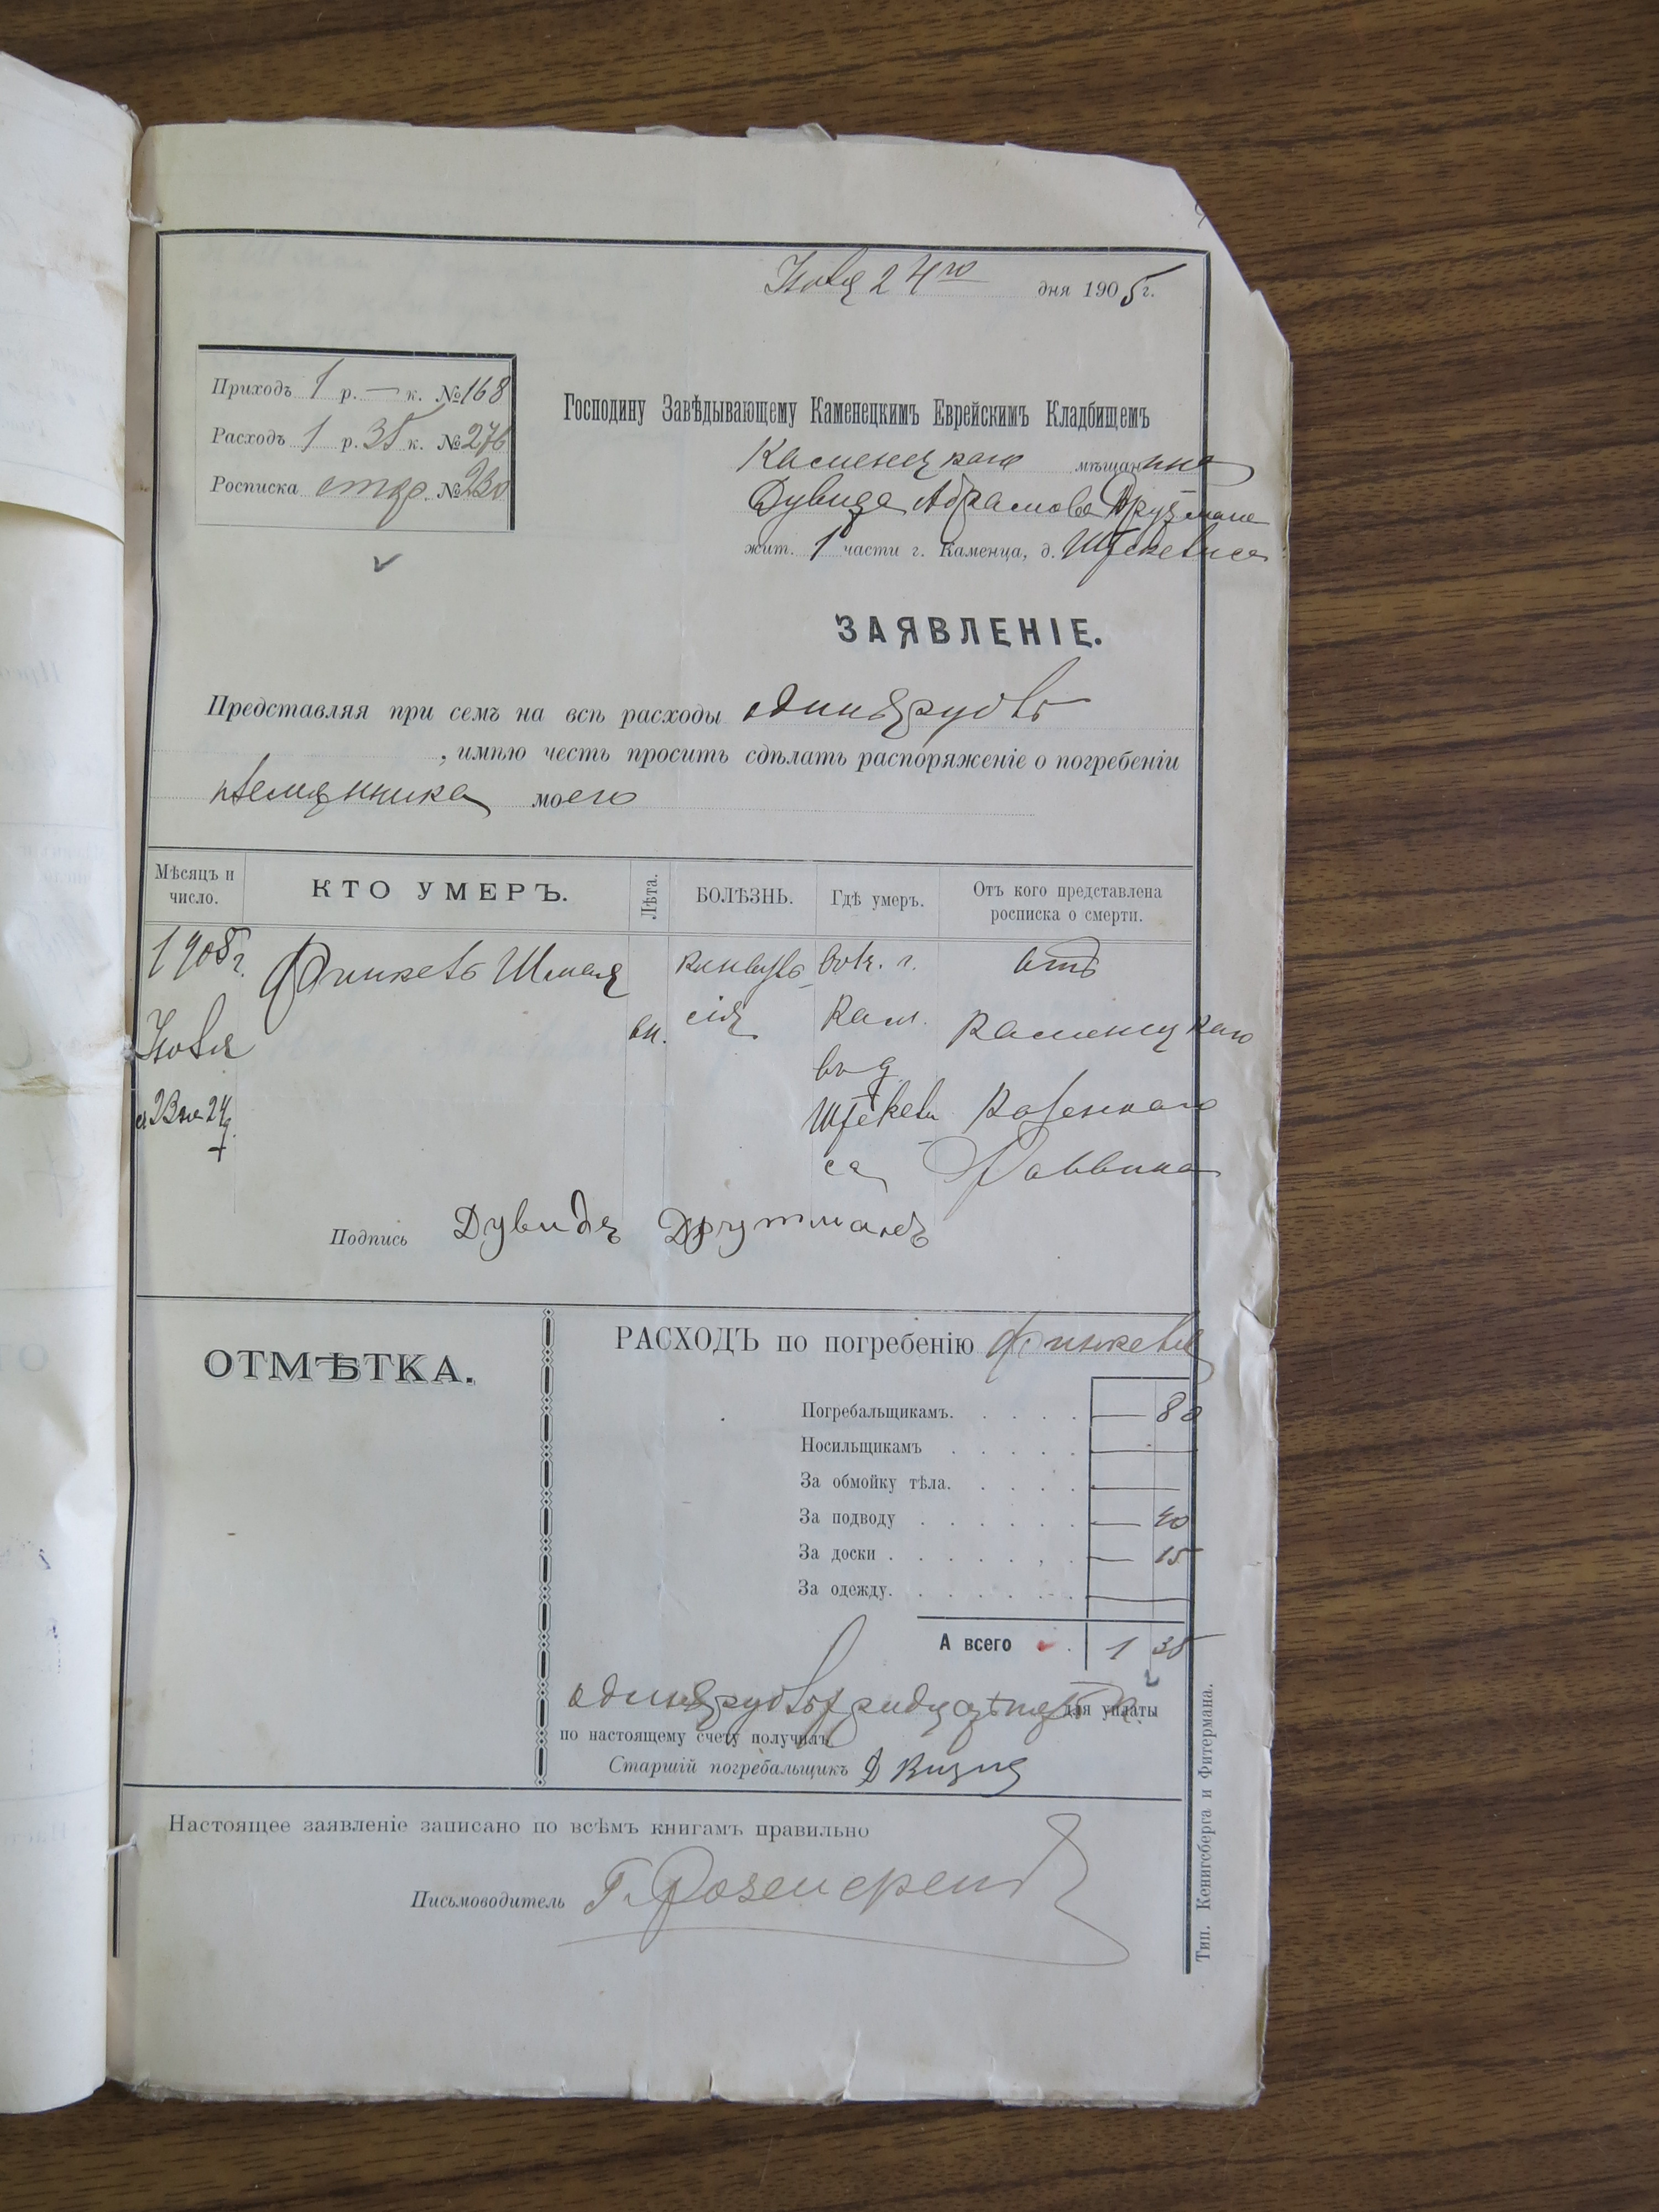 Ноября 24го дня 1905 г.
Приходъ 1 р. — к. № 168
Расходъ 1 р. 35 к. № 276
Росписка № 230
Господину Завѣдывающему Каменецкимъ Еврейскимъ Кладбищемъ
Каменецкаго мѣщанина
Дувида Абрамова Друтмана
жит. 1 части г. Каменца, д.
ЗАЯВЛЕНІЕ.
Представляя при семъ на всѣ расходы одинъ рубль
, имѣю честь просить сдѣлать распоряженіе о погребеніи
племянника моего
Мѣсяцъ и число.
КТО УМЕРЪ.
Лѣта.
БОЛѢЗНЬ.
Гдѣ умеръ.
Отъ кого представлена росписка о смерти.
1905 г. Финкель Шмая конвуль- въ г. отъ
сія Кам. Каменецкаго
въ д.
съ 23 на 24 Казеннаго
са Раввина
Подпись Дувидъ Друтманъ
ОТМѢТКА.
РАСХОДЪ по погребенію Финкеля
Погребальщикамъ. — 80
Носильщикамъ —
За обмойку тѣла. —
За подводу — 40
За доски — 15
За одежду. —
А всего 1 35
одинъ рубль тридцать пять к. для уплаты
по настоящему счету получилъ
Старшій погребальщикъ Д
Настоящее заявленіе записано по всѣмъ книгамъ правильно
Письмоводитель Г.
Тип. Кенигсберга и Фитермана.